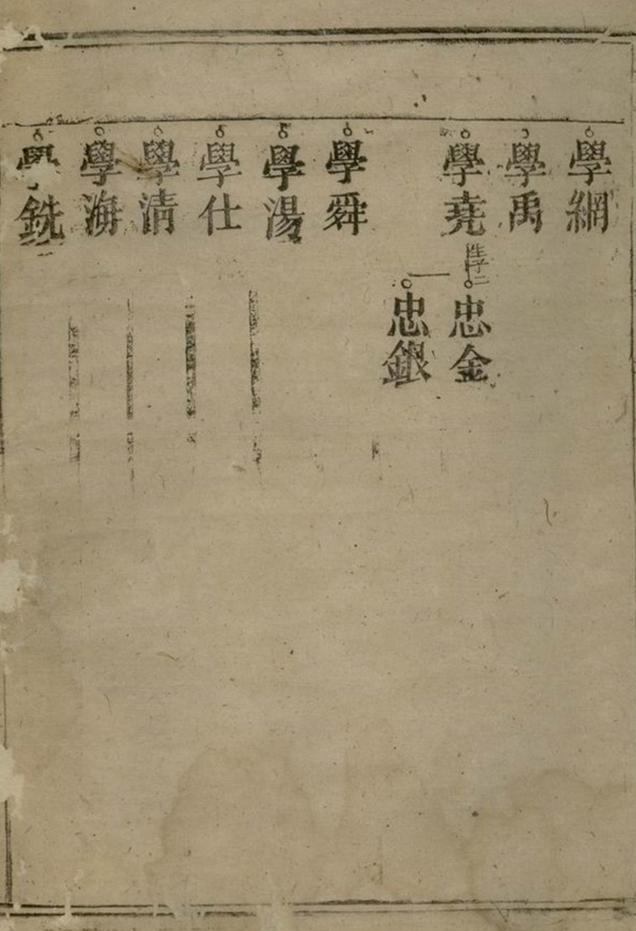 學網
學禹
學堯
生子二
忠金
忠銀
學舜
學湯
學仕
學清
學海
學銑